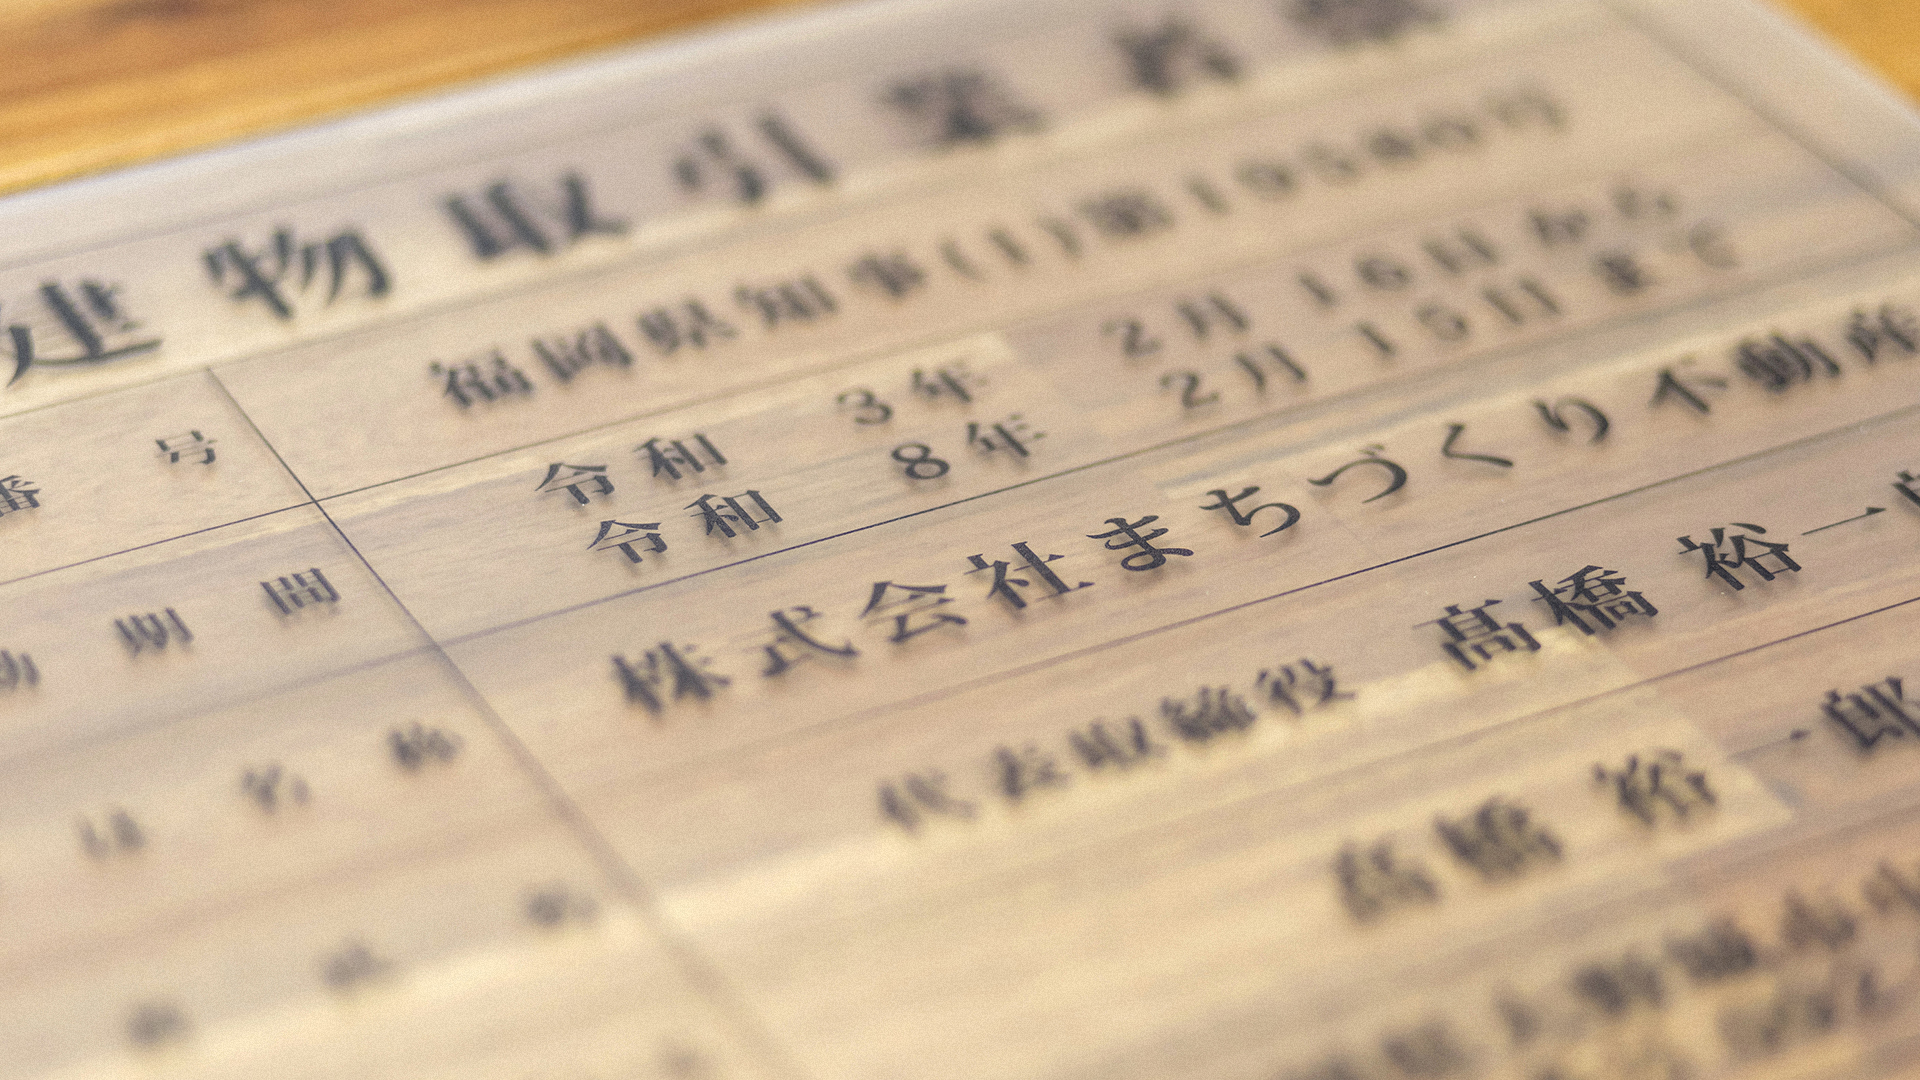 建物取引業者票
番号 福岡県知事(1)第19580号
令和 3年 2月 16日から
期間 令和 8年 2月 15日まで
名称 株式会社まちづくり不動産
代表取締役 髙橋 裕一郎
髙橋 裕一郎